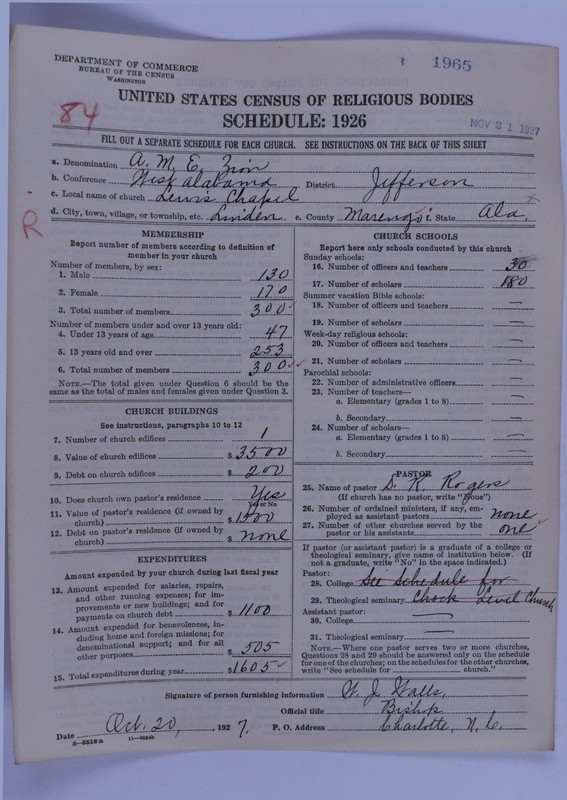 1965
DEPARTMENT OF COMMERCE
BUREAU OF THE CENSUS
WASHINGTON
84
UNITED STATES CENSUS OF RELIGIOUS BODIES
SCHEDULE: 1926
NOV 21 1927
FILL OUT A SEPARATE SCHEDULE FOR EACH CHURCH. SEE INSTRUCTIONS ON THE BACK OF THIS SHEET
a. Denomination A. M. E. Zion
b. Conference West Alabama District Jefferson
c. Local name of church Lewis Chapel
d. City, town, village, or township, etc. Linden e. County Marengo f. State Ala.
R
MEMBERSHIP
Report number of members according to definition of
member in your church
Number of members, by sex:
1. Male 130
2. Female 170
3. Total number of members 300
Number of members under and over 13 years old:
4. Under 13 years of age 47
5. 13 years old and over 253
6. Total number of members 300
NOTE.—The total given under Question 6 should be the
same as the total of males and females given under Question 3.
CHURCH BUILDINGS
See instructions, paragraphs 10 to 12
7. Number of church edifices 1
8. Value of church edifices $ 3500
9. Debt on church edifices $ 200
10. Does church own pastor's residence Yes
Yes or No
11. Value of pastor's residence (if owned by
church) $ 1500
12. Debt on pastor's residence (if owned by
church) $ none
EXPENDITURES
Amount expended by your church during last fiscal year
13. Amount expended for salaries, repairs,
and other running expenses; for im-
provements or new buildings; and for
payments on church debt $ 1100
14. Amount expended for benevolences, in-
cluding home and foreign missions; for
denominational support; and for all
other purposes $ 505
15. Total expenditures during year $ 1605
CHURCH SCHOOLS
Report here only schools conducted by this church
Sunday schools:
16. Number of officers and teachers 30
17. Number of scholars 180
Summer vacation Bible schools:
18. Number of officers and teachers —
19. Number of scholars —
Week-day religious schools:
20. Number of officers and teachers —
21. Number of scholars —
Parochial schools:
22. Number of administrative officers —
23. Number of teachers—
a. Elementary (grades 1 to 8) —
b. Secondary —
24. Number of scholars—
a. Elementary (grades 1 to 8) —
b. Secondary —
PASTOR
25. Name of pastor S. R. Rogers
(If church has no pastor, write "None")
26. Number of ordained ministers, if any, em-
ployed as assistant pastors none
27. Number of other churches served by the
pastor or his assistants one
If pastor (or assistant pastor) is a graduate of a college or
theological seminary, give name of institution below. (If
not a graduate, write "No" in the space indicated.)
Pastor:
28. College See Schedule for
29. Theological seminary Chock Level Church
Assistant pastor:
30. College —
31. Theological seminary —
NOTE.—Where one pastor serves two or more churches,
Questions 28 and 29 should be answered only on the schedule
for one of the churches; on the schedules for the other churches,
write "See schedule for church."
Signature of person furnishing information W. J. Walls,
Official title Bishop
Date Oct. 20, 1927. P. O. Address Charlotte, N. C.